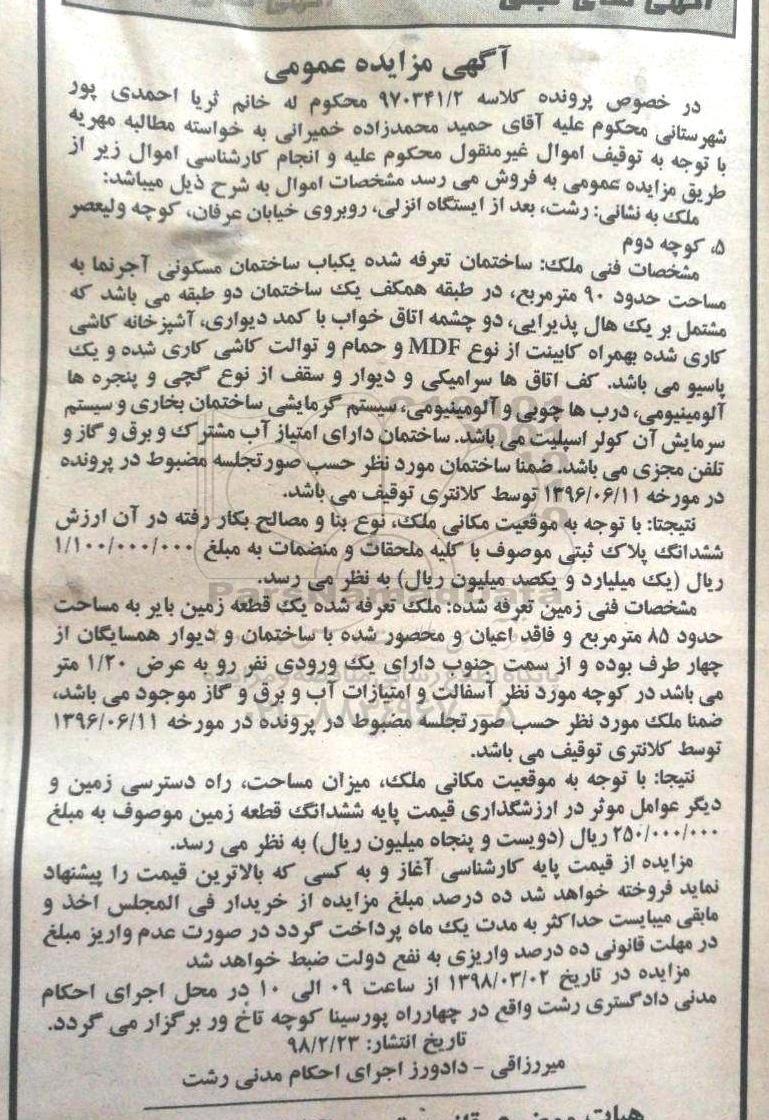 آگهی مزایده عمومی
در خصوص پرونده کلاسه ۹۷۰۳۴۱/۲ محکوم له خانم ثریا احمدی پور
شهرستانی محکوم علیه آقای حمید محمدزاده خمیرانی به خواسته مطالبه مهریه
با توجه به توقیف اموال غیرمنقول محکوم علیه و انجام کارشناسی اموال زیر از
طریق مزایده عمومی به فروش می رسد مشخصات اموال به شرح ذیل میباشد:
ملک به نشانی: رشت، بعد از ایستگاه انزلی، روبروی خیابان عرفان، کوچه ولیعصر
۵، کوچه دوم
مشخصات فنی ملک: ساختمان تعرفه شده یکباب ساختمان مسکونی آجرنما به
مساحت حدود ۹۰ مترمربع، در طبقه همکف یک ساختمان دو طبقه می باشد که
مشتمل بر یک هال پذیرایی، دو چشمه اتاق خواب با کمد دیواری، آشپزخانه کاشی
کاری شده بهمراه کابینت از نوع MDF و حمام و توالت کاشی کاری شده و یک
پاسیو می باشد. کف اتاق ها سرامیکی و دیوار و سقف از نوع گچی و پنجره ها
آلومینیومی، درب ها چوبی و آلومینیومی، سیستم گرمایشی ساختمان بخاری و سیستم
سرمایش آن کولر اسپلیت می باشد. ساختمان دارای امتیاز آب مشترک و برق و گاز و
تلفن مجزی می باشد. ضمنا ساختمان مورد نظر حسب صورتجلسه مضبوط در پرونده
در مورخه ۱۳۹۶/۰۶/۱۱ توسط کلانتری توقیف می باشد.
نتیجتا: با توجه به موقعیت مکانی ملک، نوع بنا و مصالح بکار رفته در آن ارزش
ششدانگ پلاک ثبتی موصوف با کلیه ملحقات و منضمات به مبلغ ۱/۱۰۰/۰۰۰/۰۰۰
ریال (یک میلیارد و یکصد میلیون ریال) به نظر می رسد.
ParsNamadData
مشخصات فنی زمین تعرفه شده: ملک تعرفه شده یک قطعه زمین بایر به مساحت
حدود ۸۵ مترمربع و فاقد اعیان و محصور شده با ساختمان و دیوار همسایگان از
چهار طرف بوده و از سمت جنوب دارای یک ورودی نفر رو به عرض ۱/۲۰ متر
می باشد در کوچه مورد نظر آسفالت و امتیازات آب و برق و گاز موجود می باشد،
ضمنا ملک مورد نظر حسب صورتجلسه مضبوط در پرونده در مورخه ۱۳۹۶/۰۶/۱۱
توسط کلانتری توقیف می باشد.
نتیجا: با توجه به موقعیت مکانی ملک، میزان مساحت، راه دسترسی زمین و
دیگر عوامل موثر در ارزشگذاری قیمت پایه ششدانگ قطعه زمین موصوف به مبلغ
۲۵۰/۰۰۰/۰۰۰ ریال (دویست و پنجاه میلیون ریال) به نظر می رسد.
مزایده از قیمت پایه کارشناسی آغاز و به کسی که بالاترین قیمت را پیشنهاد
نماید فروخته خواهد شد ده درصد مبلغ مزایده از خریدار فی المجلس اخذ و
مابقی میبایست حداکثر به مدت یک ماه پرداخت گردد در صورت عدم واریز مبلغ
در مهلت قانونی ده درصد واریزی به نفع دولت ضبط خواهد شد
مزایده در تاریخ ۱۳۹۸/۰۳/۰۲ از ساعت ۰۹ الی ۱۰ در محل اجرای احکام
مدنی دادگستری رشت واقع در چهارراه پورسینا کوچه تاخ ور برگزار می گردد.
تاریخ انتشار: ۹۸/۲/۲۳
میررزاقی - دادورز اجرای احکام مدنی رشت